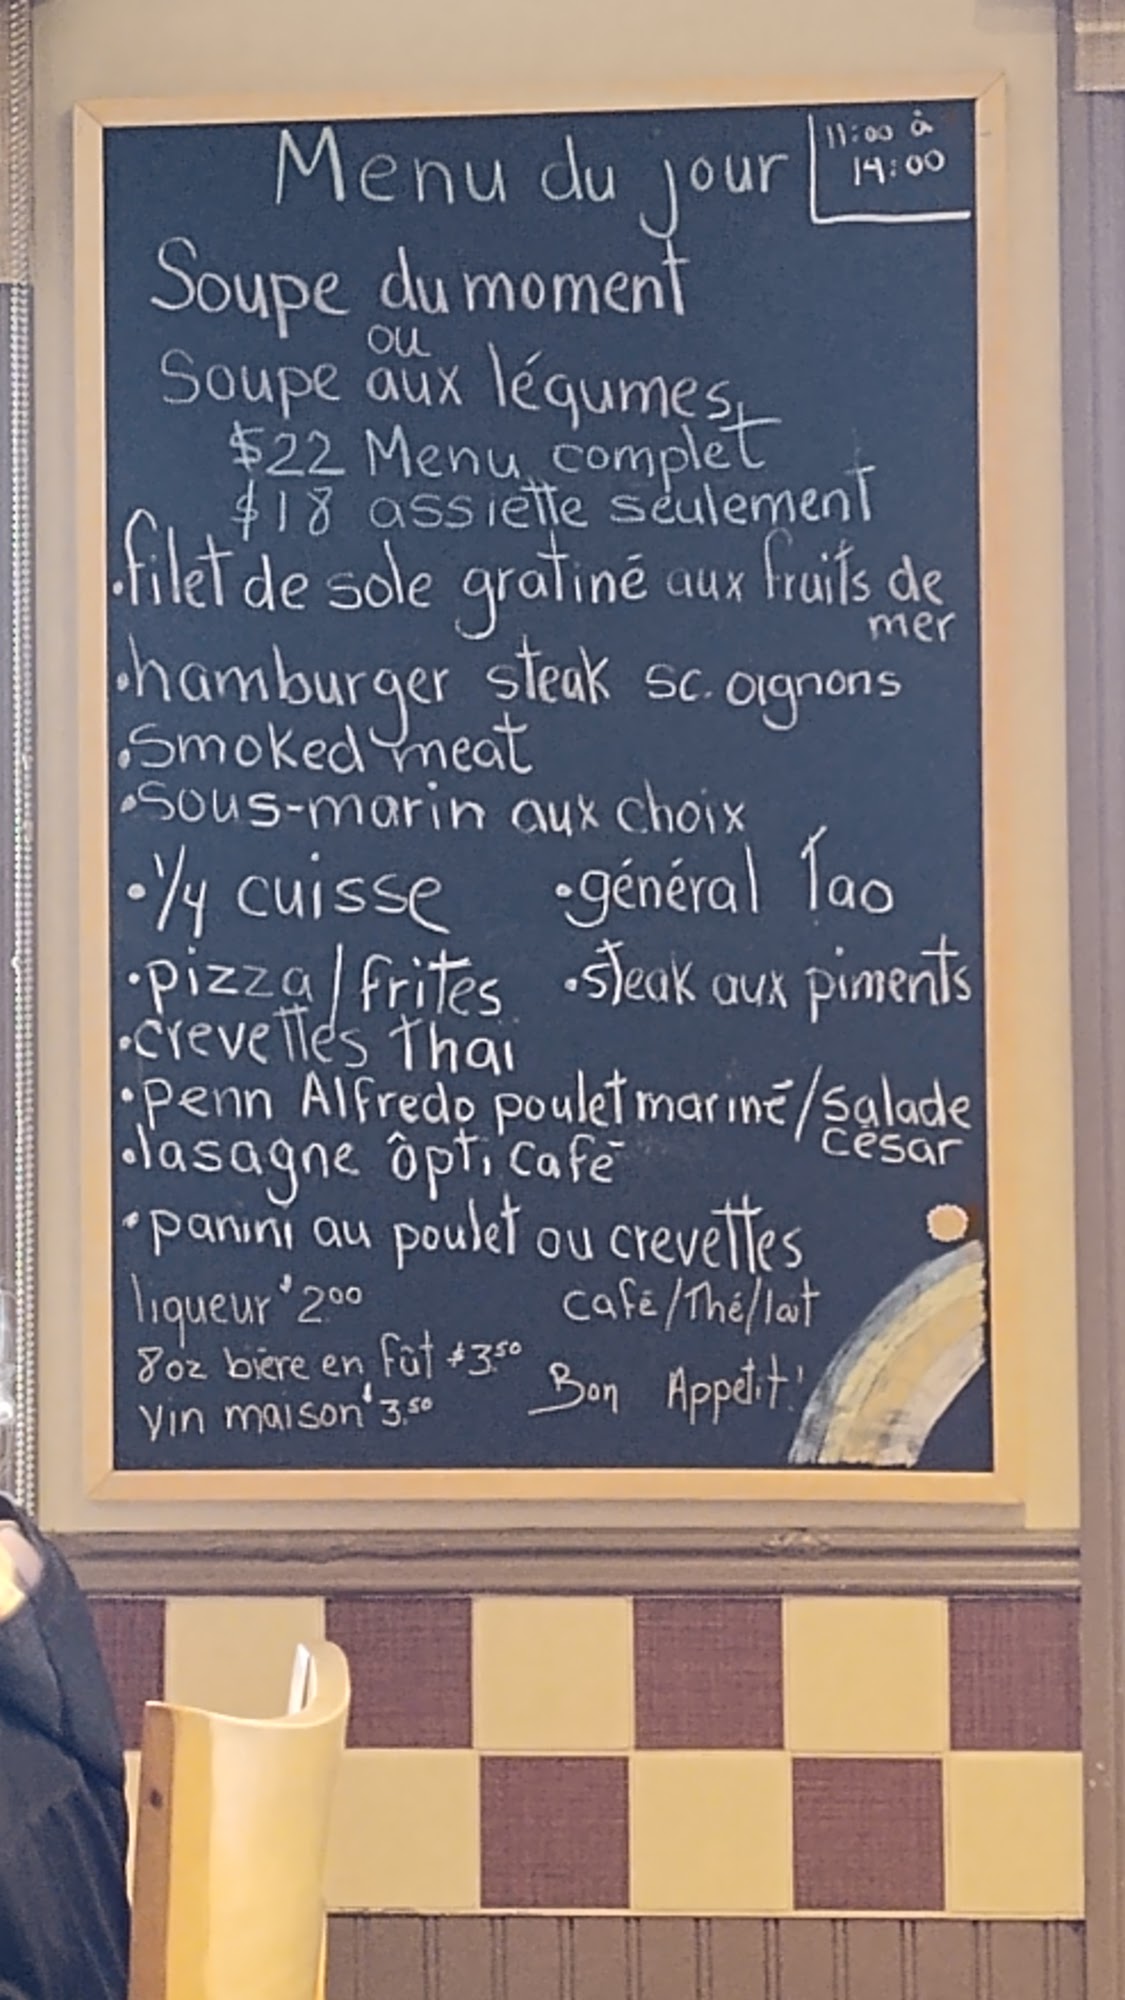 Menu du jour
11:00 à
14:00
Soupe du moment
ou
Soupe aux légumes
$22 Menu complet
$18 assiette seulement
•filet de sole gratiné aux fruits de
mer
•hamburger steak sc. oignons
•Smoked meat
•sous-marin aux choix
•1/4 cuisse •général Tao
•pizza/frites •steak aux piments
•crevettes Thai
•penn Alfredo poulet mariné/salade
césar
•lasagne ôpti café
•panini au poulet ou crevettes
liqueur $2.00 café/Thé/lait
8oz bière en fût $3.50
Bon Appetit!
vin maison $3.50